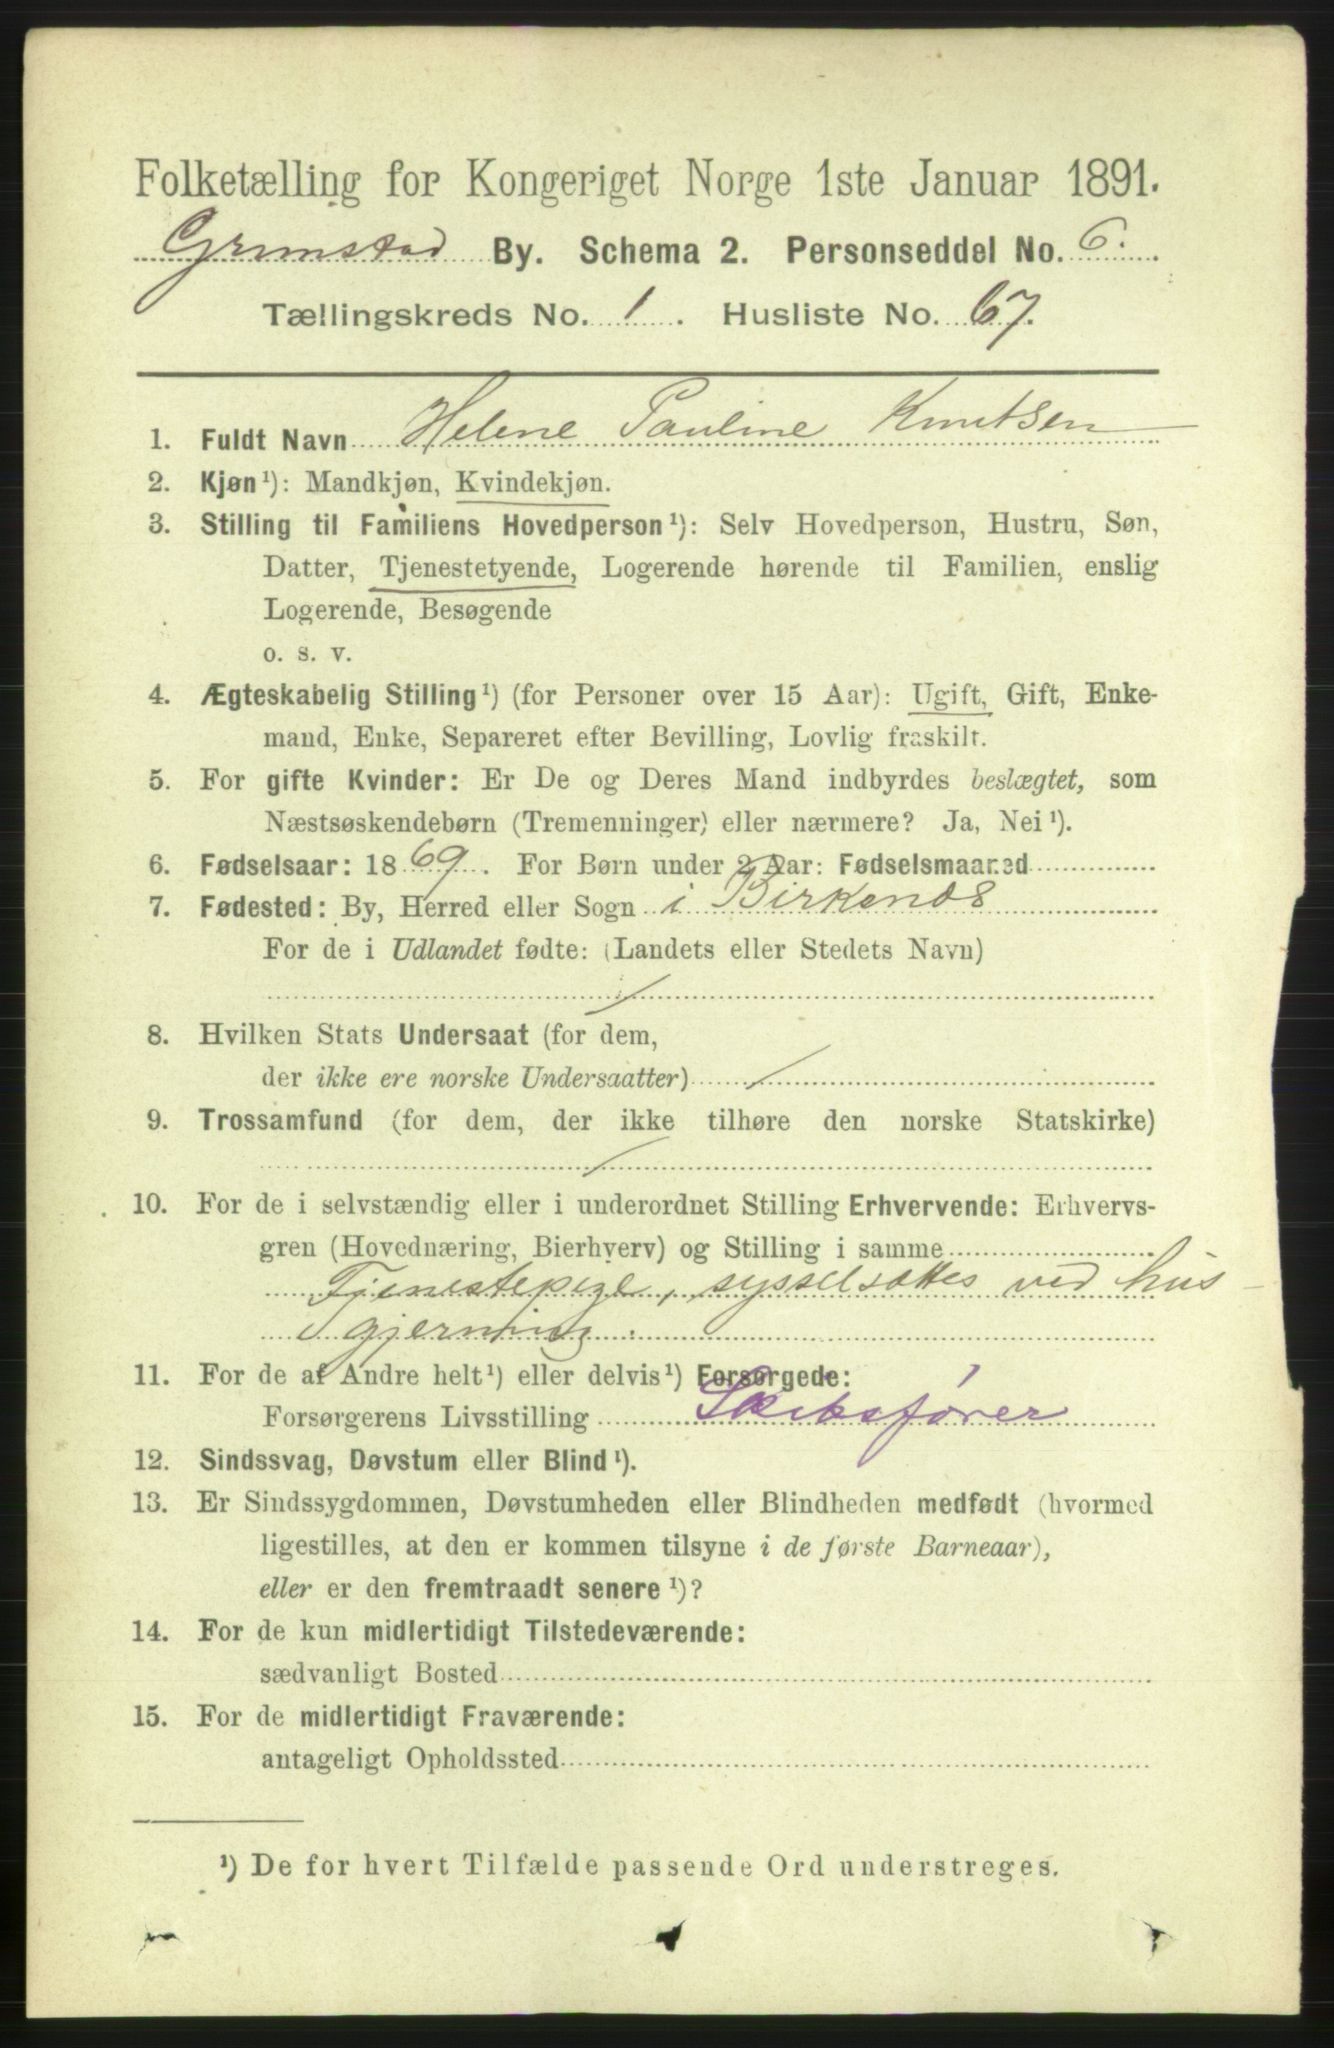 Folketælling for Kongeriget Norge 1ste Januar 1891.
Grimstad By. Schema 2. Personseddel No. 6.
Tællingskreds No. 1. Husliste No. 67.
1. Fuldt Navn Helene Pauline Knutsen
2. Kjøn¹): Mandkjøn, Kvindekjøn.
3. Stilling til Familiens Hovedperson¹): Selv Hovedperson, Hustru, Søn,
Datter, Tjenestetyende, Logerende hørende til Familien, enslig
Logerende, Besøgende
o. s. v.
4. Ægteskabelig Stilling¹) (for Personer over 15 Aar): Ugift, Gift, Enke-
mand, Enke, Separeret efter Bevilling, Lovlig fraskilt.
5. For gifte Kvinder: Er De og Deres Mand indbyrdes beslægtet, som
Næstsøskendebørn (Tremenninger) eller nærmere? Ja, Nei¹).
6. Fødselsaar: 1869. For Børn under 2 Aar: Fødselsmaaned
7. Fødested: By, Herred eller Sogn i Birkenæs
For de i Udlandet fødte: (Landets eller Stedets Navn)
/
8. Hvilken Stats Undersaat (for dem,
der ikke ere norske Undersaatter) /
9. Trossamfund (for dem, der ikke tilhøre den norske Statskirke)
/
10. For de i selvstændig eller i underordnet Stilling Erhvervende: Erhvervs-
gren (Hovednæring, Bierhverv) og Stilling i samme
Tjenestepige, sysselsættes ved hus-
gjerning.
11. For de af Andre helt¹) eller delvis¹) Forsørgede:
Forsørgerens Livsstilling Skibsfører
12. Sindssvag, Døvstum eller Blind¹).
13. Er Sindssygdommen, Døvstumheden eller Blindheden medfødt (hvormed
ligestilles, at den er kommen tilsyne i de første Barneaar),
eller er den fremtraadt senere¹)?
14. For de kun midlertidigt Tilstedeværende:
sædvanligt Bosted
15. For de midlertidigt Fraværende:
antageligt Opholdssted
¹) De for hvert Tilfælde passende Ord understreges.